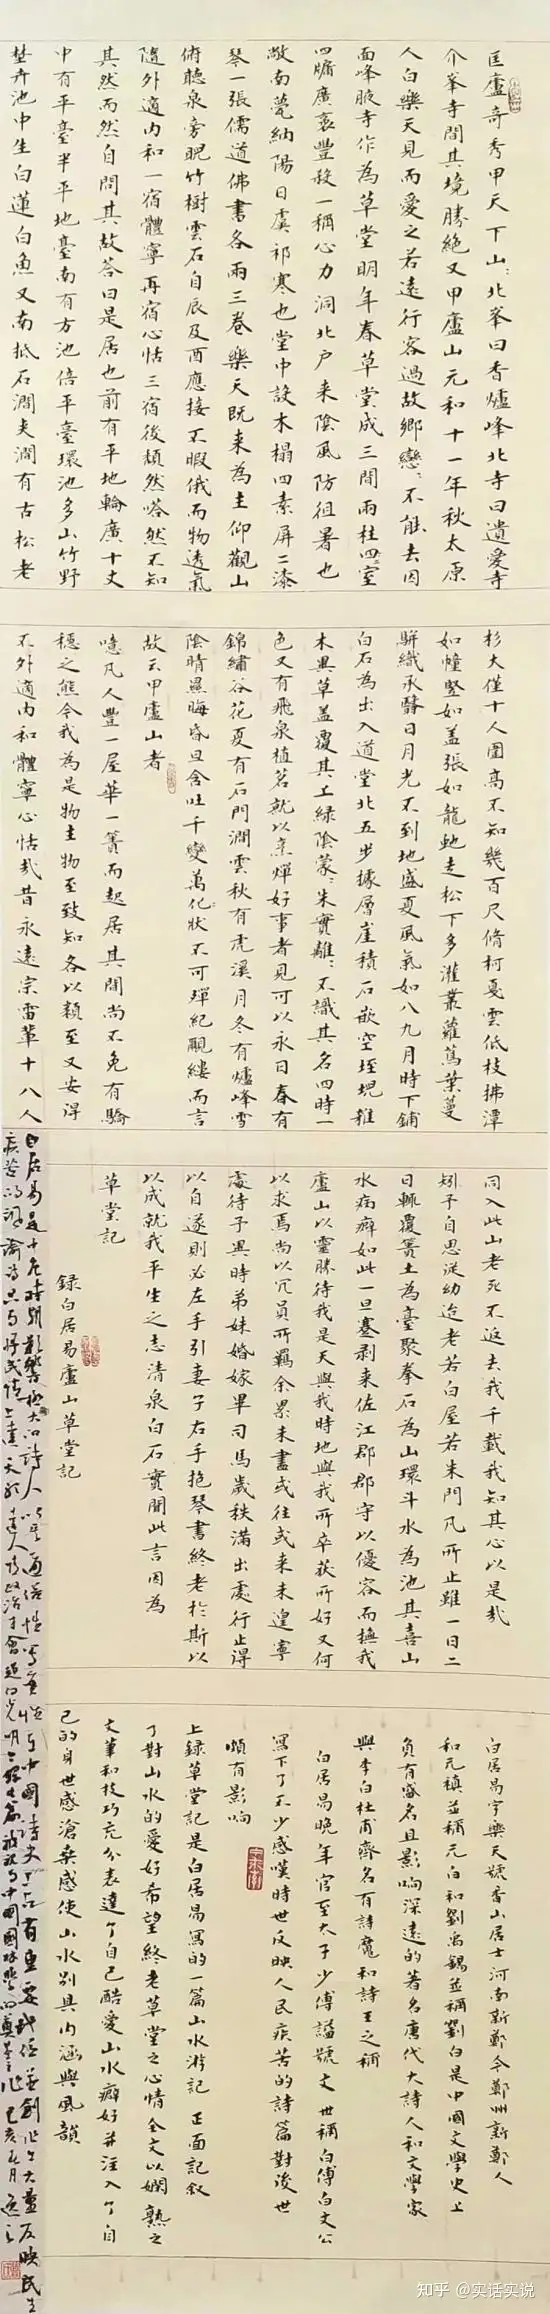 匡廬奇秀甲天下山:北峯曰香爐峰北寺曰遺愛寺
介峯寺間其境勝絕又甲廬山元和十一年秋太原
人白樂天見而愛之若遠行客過故鄉戀:不能去因
面峰腋寺作為草堂明年春草堂成三間兩柱四室
四牖廣袤豐殺一稱心力洞北户来陰風防徂暑也
敞南甍納陽日虞祁寒也堂中設木榻四素屏二漆
琴一張儒道佛書各兩三卷樂天既来為主仰觀山
俯聽泉旁睨竹樹雲石自辰及酉應接不暇俄而物透氣
隨外適内和一宿體寧再宿心恬三宿後頹然嗒然不知
其然而然自問其故答曰是居也前有平地輪廣十丈
中有平臺半平地臺南有方池倍平臺環池多山竹野
埜卉池中生白蓮白魚又南抵石澗夾澗有古松老
杉大僅十人圍高不知幾百尺脩柯戛雲低枝拂潭
如幢竪如蓋張如龍虵走松下多灌叢蘿蔦葉蔓
駢織承翳日月光不到地盛夏風氣如八九月時下鋪
白石為出入道堂北五步據層崖積石嵌空垤堄雜
木異草蓋覆其上綠陰蒙:朱實離:不識其名四時一
色又有飛泉植茗就以烹燀好事者見可以永日春有
錦繡谷花夏有石門澗雲秋有虎溪月冬有爐峰雪
陰晴顯晦昏旦含吐千變萬化狀不可殫紀覼縷而言
故云甲廬山者
噫凡人豐一屋華一簀而起居其間尚不免有驕
穩之態今我為是物主物至致知各以類至又安得
不外適内和體寧心恬哉昔永遠宗雷輩十八人
同入此山老死不返去我千載我知其心以是哉
矧予自思從幼迨老若白屋若朱門凡所止雖一日二
日輒覆簣土為臺聚拳石為山環斗水為池其喜山
水病癖如此一旦蹇剥来佐江郡郡守以優容而撫我
廬山以靈勝待我是天與我時地與我所卒获所好又何
以求焉尚以冗員所羈余累未盡或往或来未遑寧
處待予異時弟妹婚嫁畢司馬歲秩滿出處行止得
以自遂則必左手引妻子右手抱琴書終老於斯以
以成就我平生之志清泉白石實聞此言因為
草堂記
録白居易廬山草堂記
白居易字樂天號香山居士河南新鄭今鄭州新鄭人
和元稹並稱元白和劉禹錫並稱劉白是中國文學史上
負有盛名且影响深遠的著名唐代大詩人和文學家
與李白杜甫齊名有詩魔和詩王之稱
白居易晚年官至太子少傅謚號文世稱白傅白文公
寫下了不少感嘆時世反映人民疾苦的詩篇對後世
頗有影响
上録草堂記是白居易寫的一篇山水游記正面記叙
了對山水的愛好希望終老草堂之心情全文以嫻熟之
文筆和技巧充分表達了自己酷愛山水癖好并注入了自
己的身世感滄桑感使山水别具内涵與風韻
白居易是十九時期影響極大的詩人以其通俗性寫實性在中國詩史上占有重要地位并創作了大量反映民生
疾苦的
知乎 @实话实说